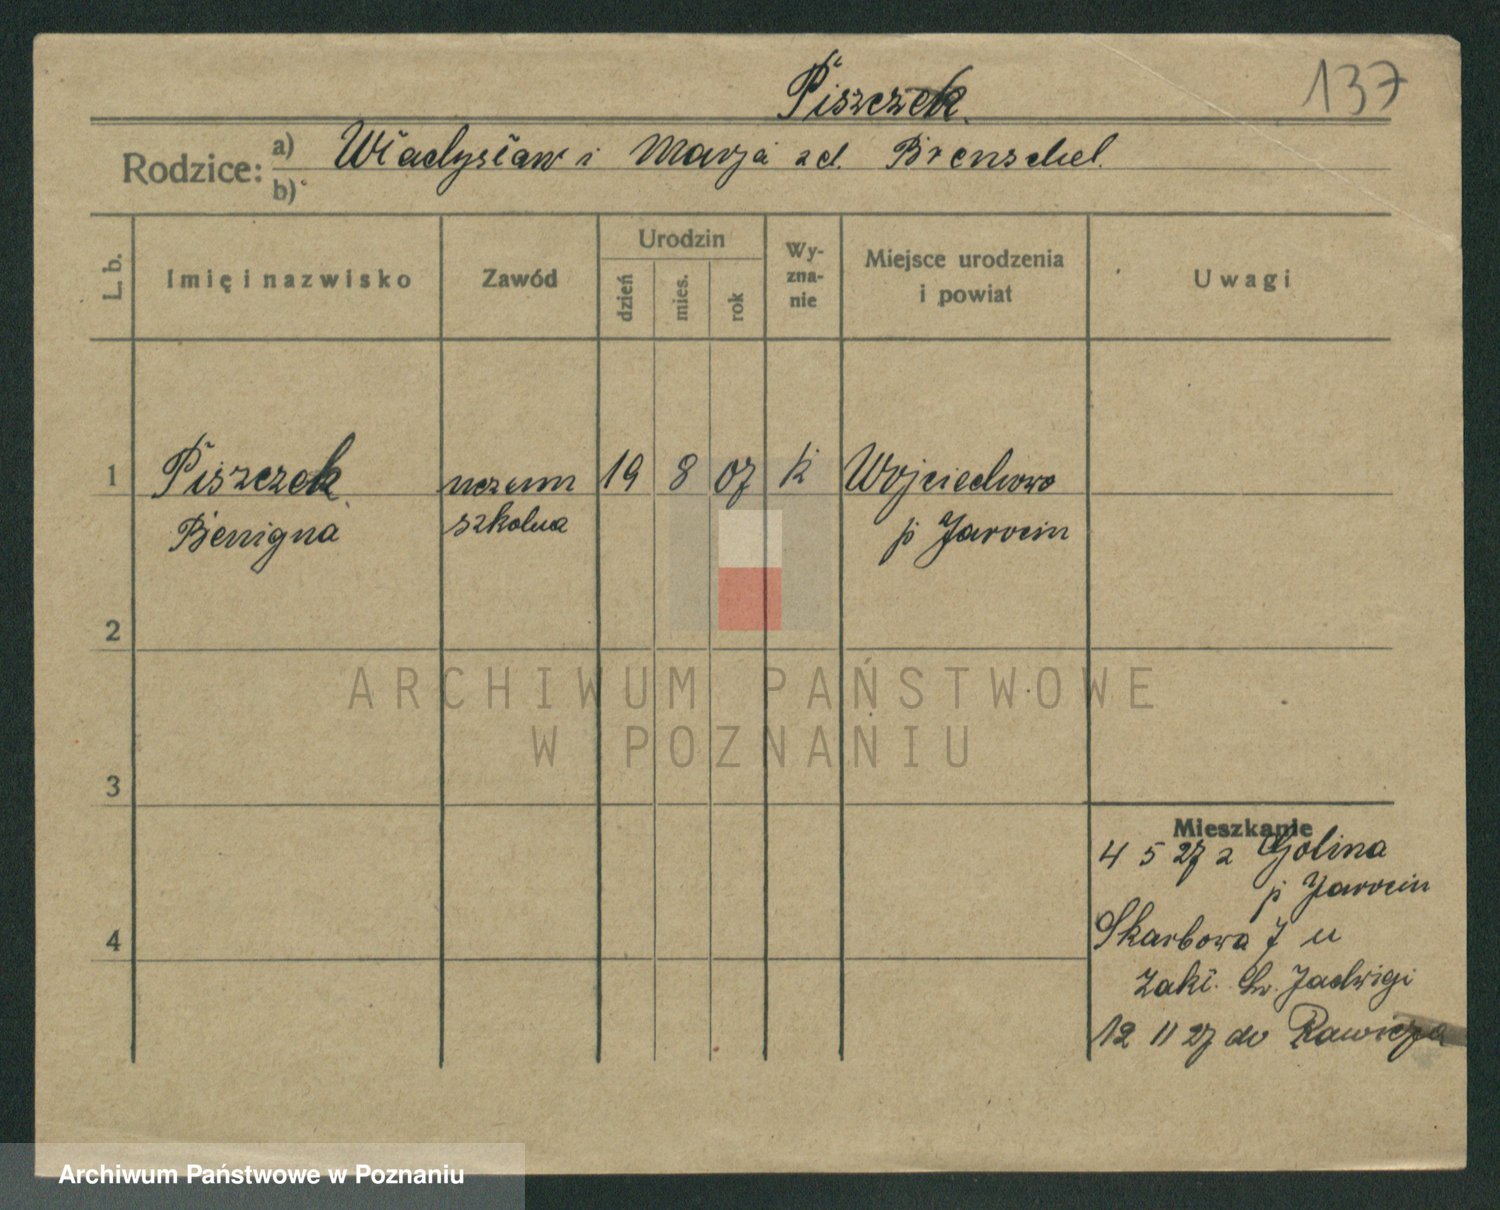 Piszczek
137
Rodzice: a) Władysław i Marja zd. Brenschel.
b)
L. b.
Imię i nazwisko
Zawód
Urodzin
dzień
mies.
rok
Wy-
zna-
nie
Miejsce urodzenia
i powiat
Uwagi
1 Piszczek 19 8 07 k Wojciechowo
Benigna szkolna p Jarocin
2
3
4
Mieszkanie
4 5 27 z Golina
p Jarocin
Skarbowa 7 u
Zakł. św. Jadwigi
12 11 27 do Rawicza
ARCHIWUM PAŃSTWOWE
W POZNANIU
Archiwum Państwowe w Poznaniu